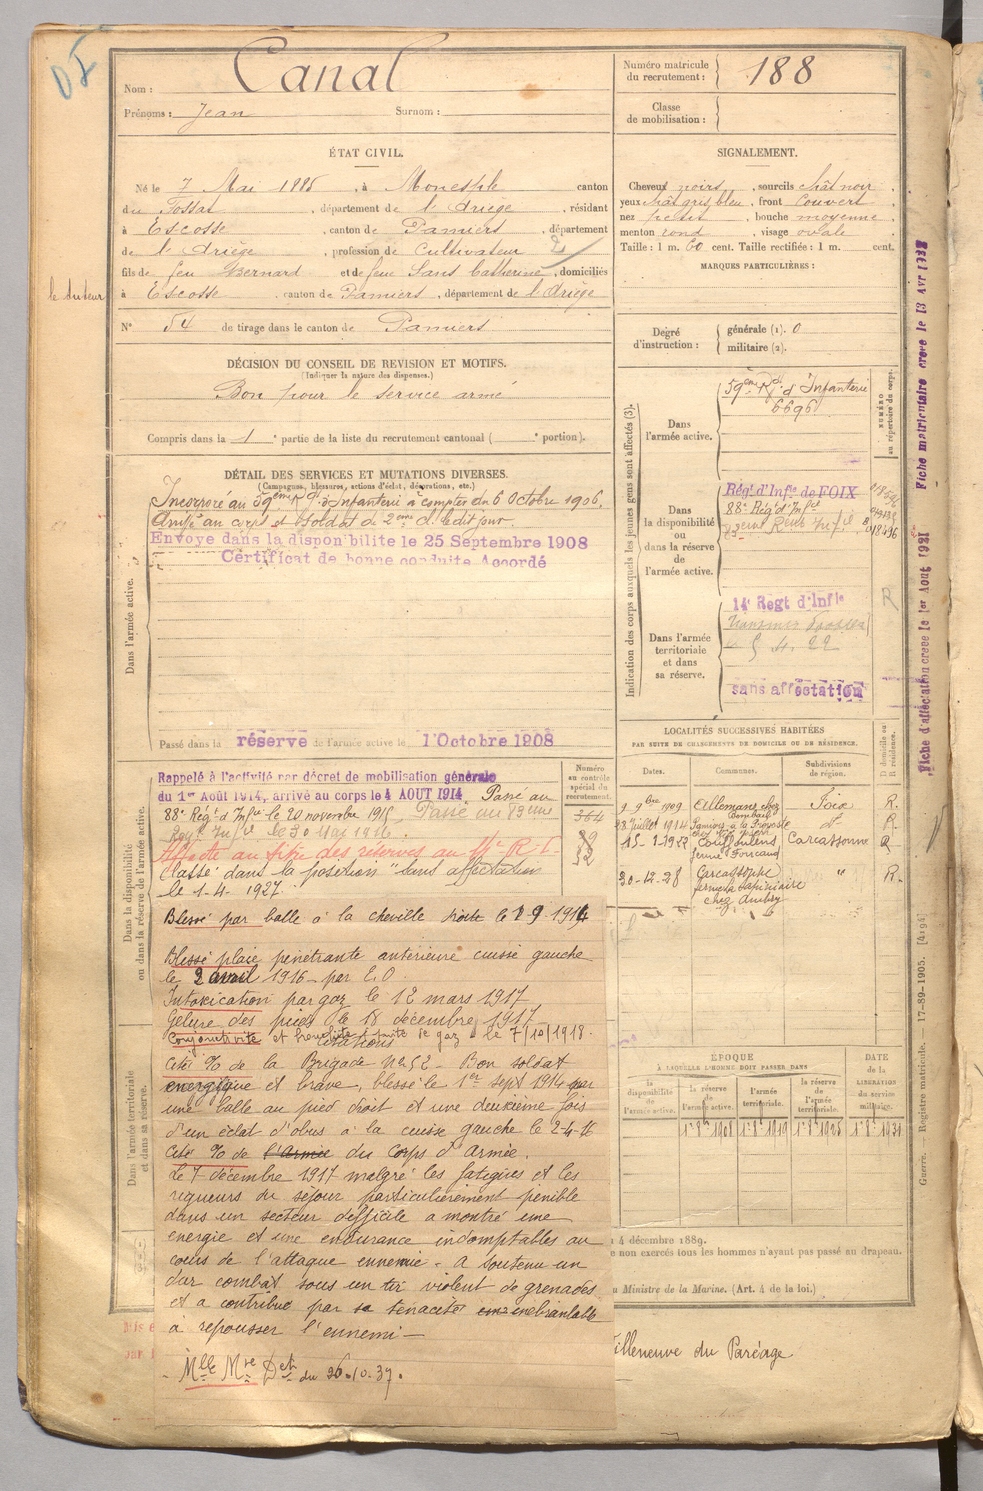 Nom : Canal
Prénoms : Jean Surnom :
Numéro matricule du recrutement : 188
Classe de mobilisation :
ÉTAT CIVIL.
Né le 7 Mai 1885, à Monesple canton
du Fossat, département de l'Ariège, résidant
à Escosse, canton de Pamiers, département
de l'Ariège, profession de Cultivateur
fils de feu Bernard et de feue Sans Catherine, domiciliés
à Escosse, canton de Pamiers, département de l'Ariège
le tuteur
N° 54 de tirage dans le canton de Pamiers
SIGNALEMENT.
Cheveux noirs, sourcils chât noir,
yeux chât gris bleu, front couvert
nez petit, bouche moyenne,
menton rond, visage ovale
Taille : 1 m. 60 cent. Taille rectifiée : 1 m. cent.
MARQUES PARTICULIÈRES :
Degré d'instruction : générale (1). 0
militaire (2).
DÉCISION DU CONSEIL DE REVISION ET MOTIFS.
(Indiquer la nature des dispenses.)
Bon pour le service armé
Compris dans la 1e partie de la liste du recrutement cantonal ( e portion).
DÉTAIL DES SERVICES ET MUTATIONS DIVERSES.
(Campagnes, blessures, actions d'éclat, décorations, etc.)
Dans l'armée active.
Incorporé au 59eme Rgt d'Infanterie à compter du 6 Octobre 1906.
Arrivé au corps et soldat de 2eme cl. le dit jour
Envoye dans la disponibilite le 25 Septembre 1908
Certificat de bonne conduite Accordé
Passé dans la réserve de l'armée active le 1 Octobre 1908
Indication des corps auxquels les jeunes gens sont affectés (3).
NUMÉRO au répertoire du corps.
Dans l'armée active.
59em Rgt d'Infanterie
6696
Dans la disponibilité ou dans la réserve de l'armée active.
Régt d'Infie de FOIX
88e Régt d'Infie
83eme Régt Infie
018496
Dans l'armée territoriale et dans sa réserve.
14e Regt d'Infie
5 4. 22
sans affectation
R
Fiche d'affectation creee le 1er Aout 1921
Fiche matriculaire creee le 13 Avr 1938
Dans la disponibilité ou dans la réserve de l'armée active.
Numéro au contrôle spécial du recrutement.
Rappelé à l'activité par décret de mobilisation générale
du 1er Août 1914, arrivé au corps le 4 AOUT 1914 Passé au
88e Régt d'Infie le 20 novembre 1915, Passé au 83eme
Regt Infie le 30 Mai 1916.
Affecté au titre des réserves au 14e R. I.
Classé dans la position "sans affectation"
le 1-4-1927.
Blessé par balle à la cheville droite le 1-9-1914
Blessé plaie pénétrante antérieure cuisse gauche
le 2 avril 1916 par E.O
Intoxication par gaz le 12 mars 1917
Gelure des pieds le 18 décembre 1917
Conjonctivite et bronchite suite de gaz le 7/10/1918.
Citations
Cité % de la Brigade N° 52 - Bon soldat
energique et brave, blessé le 1er sept 1914 par
une balle au pied droit et une deuxième fois
d'un éclat d'obus à la cuisse gauche le 2-4-16
Cité % de l'Armée du Corps d'Armée.
Le 7 décembre 1917 malgré les fatigues et les
rigueurs du séjour particulièrement pénible
dans un secteur difficile a montré une
energie et une endurance indomptables au
cours de l'attaque ennemie. A soutenu un
dur combat sous un tir violent de grenades
et a contribué par sa ténacité inebranlable
à repousser l'ennemi —
Mlle Mre Det du 26.10.37.
LOCALITÉS SUCCESSIVES HABITÉES
PAR SUITE DE CHANGEMENTS DE DOMICILE OU DE RÉSIDENCE.
Dates. Communes. Subdivisions de région. D domicile ou R résidence.
9 9bre 1909 Allemans chez Foix R.
28 Juillet 1914 Pamiers à la do R.
15-1-1922 Couffoulens Carcassonne R
ferme
30-12-28 Carcassonne " R.
chez Aubry
ÉPOQUE
À LAQUELLE L'HOMME DOIT PASSER DANS
la disponibilité de l'armée active. la réserve de l'armée active. l'armée territoriale. la réserve de l'armée territoriale.
DATE de la LIBÉRATION du service militaire.
1er 8bre 1908 1er 8bre 1919 1er 8bre 1925 1er 8bre 1931
Dans l'armée territoriale et dans sa réserve.
4 décembre 1889.
e non exercés tous les hommes n'ayant pas passé au drapeau.
u Ministre de la Marine. (Art. 4 de la loi.)
illeneuve du Paréage
Guerre. Registre matricule. 17-89-1905. [4194]